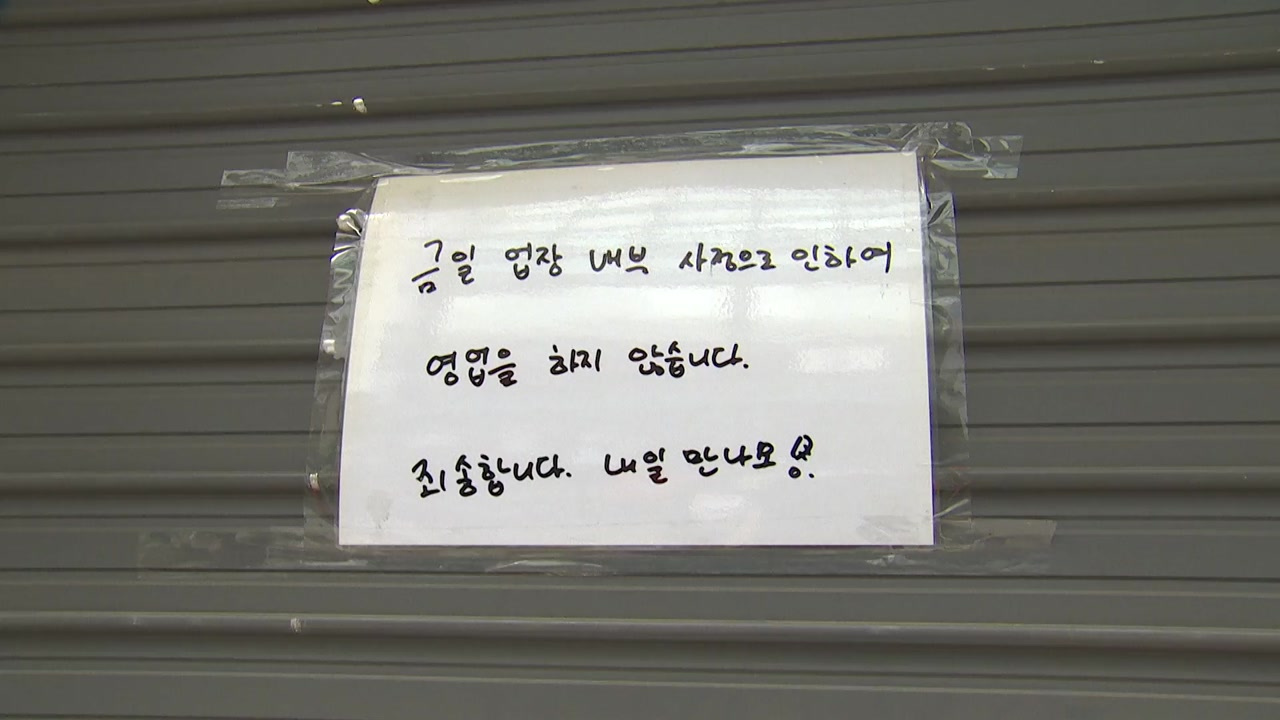 금일 업장 내부 사정으로 인하여
영업을 하지 않습니다.
죄송합니다. 내일 만나요